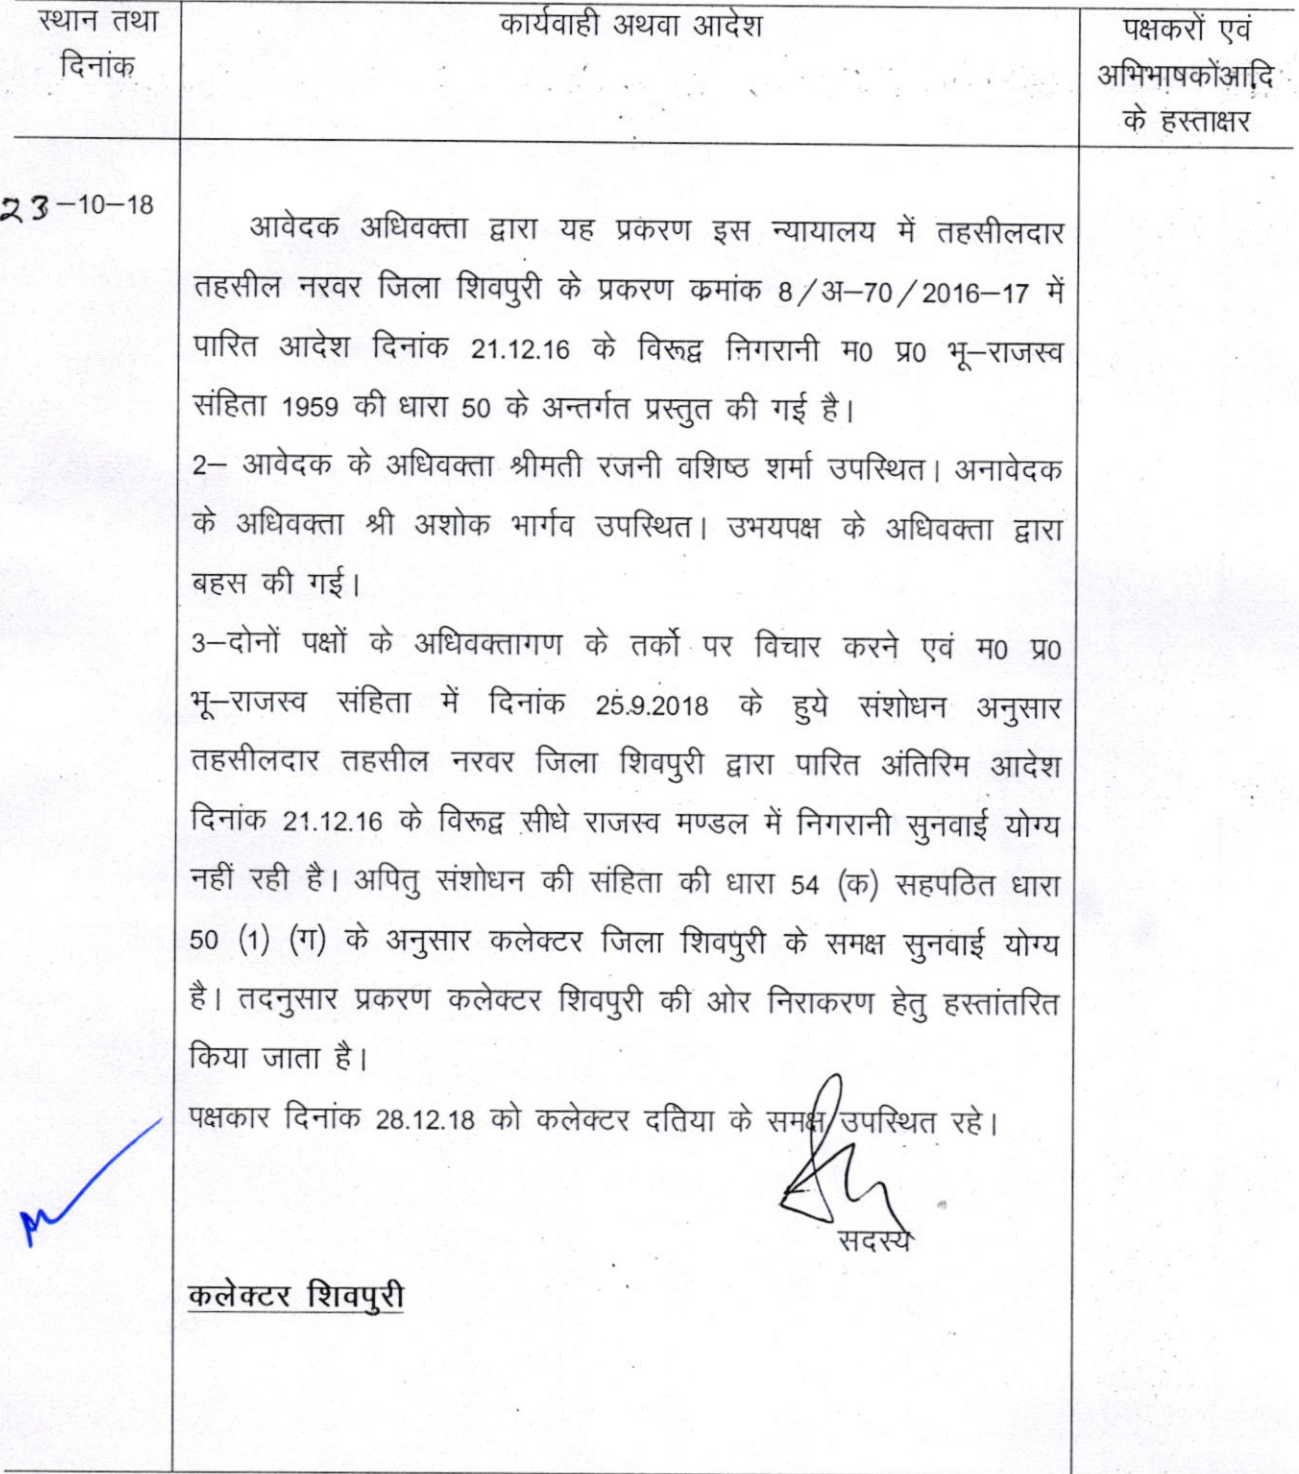 स्थान तथा
दिनांक
कार्यवाही अथवा आदेश
पक्षकरों एवं
अभिभाषकोंआदि
के हस्ताक्षर
23-10-18
आवेदक अधिवक्ता द्वारा यह प्रकरण इस न्यायालय में तहसीलदार
तहसील नरवर जिला शिवपुरी के प्रकरण कमांक 8/अ-70/2016-17 में
पारित आदेश दिनांक 21.12.16 के विरूद्व निगरानी म0 प्र0 भू-राजस्व
संहिता 1959 की धारा 50 के अन्तर्गत प्रस्तुत की गई है।
2- आवेदक के अधिवक्ता श्रीमती रजनी वशिष्ठ शर्मा उपस्थित। अनावेदक
के अधिवक्ता श्री अशोक भार्गव उपस्थित। उभयपक्ष के अधिवक्ता द्वारा
बहस की गई।
3-दोनों पक्षों के अधिवक्तागण के तर्को पर विचार करने एवं म0 प्र0
भू-राजस्व संहिता में दिनांक 25.9.2018 के हुये संशोधन अनुसार
तहसीलदार तहसील नरवर जिला शिवपुरी द्वारा पारित अंतिरिम आदेश
दिनांक 21.12.16 के विरूद्व सीधे राजस्व मण्डल में निगरानी सुनवाई योग्य
नहीं रही है। अपितु संशोधन की संहिता की धारा 54 (क) सहपठित धारा
50 (1) (ग) के अनुसार कलेक्टर जिला शिवपुरी के समक्ष सुनवाई योग्य
है। तदनुसार प्रकरण कलेक्टर शिवपुरी की ओर निराकरण हेतु हस्तांतरित
किया जाता है।
पक्षकार दिनांक 28.12.18 को कलेक्टर दतिया के समक्ष उपस्थित रहे।
सदस्य
कलेक्टर शिवपुरी